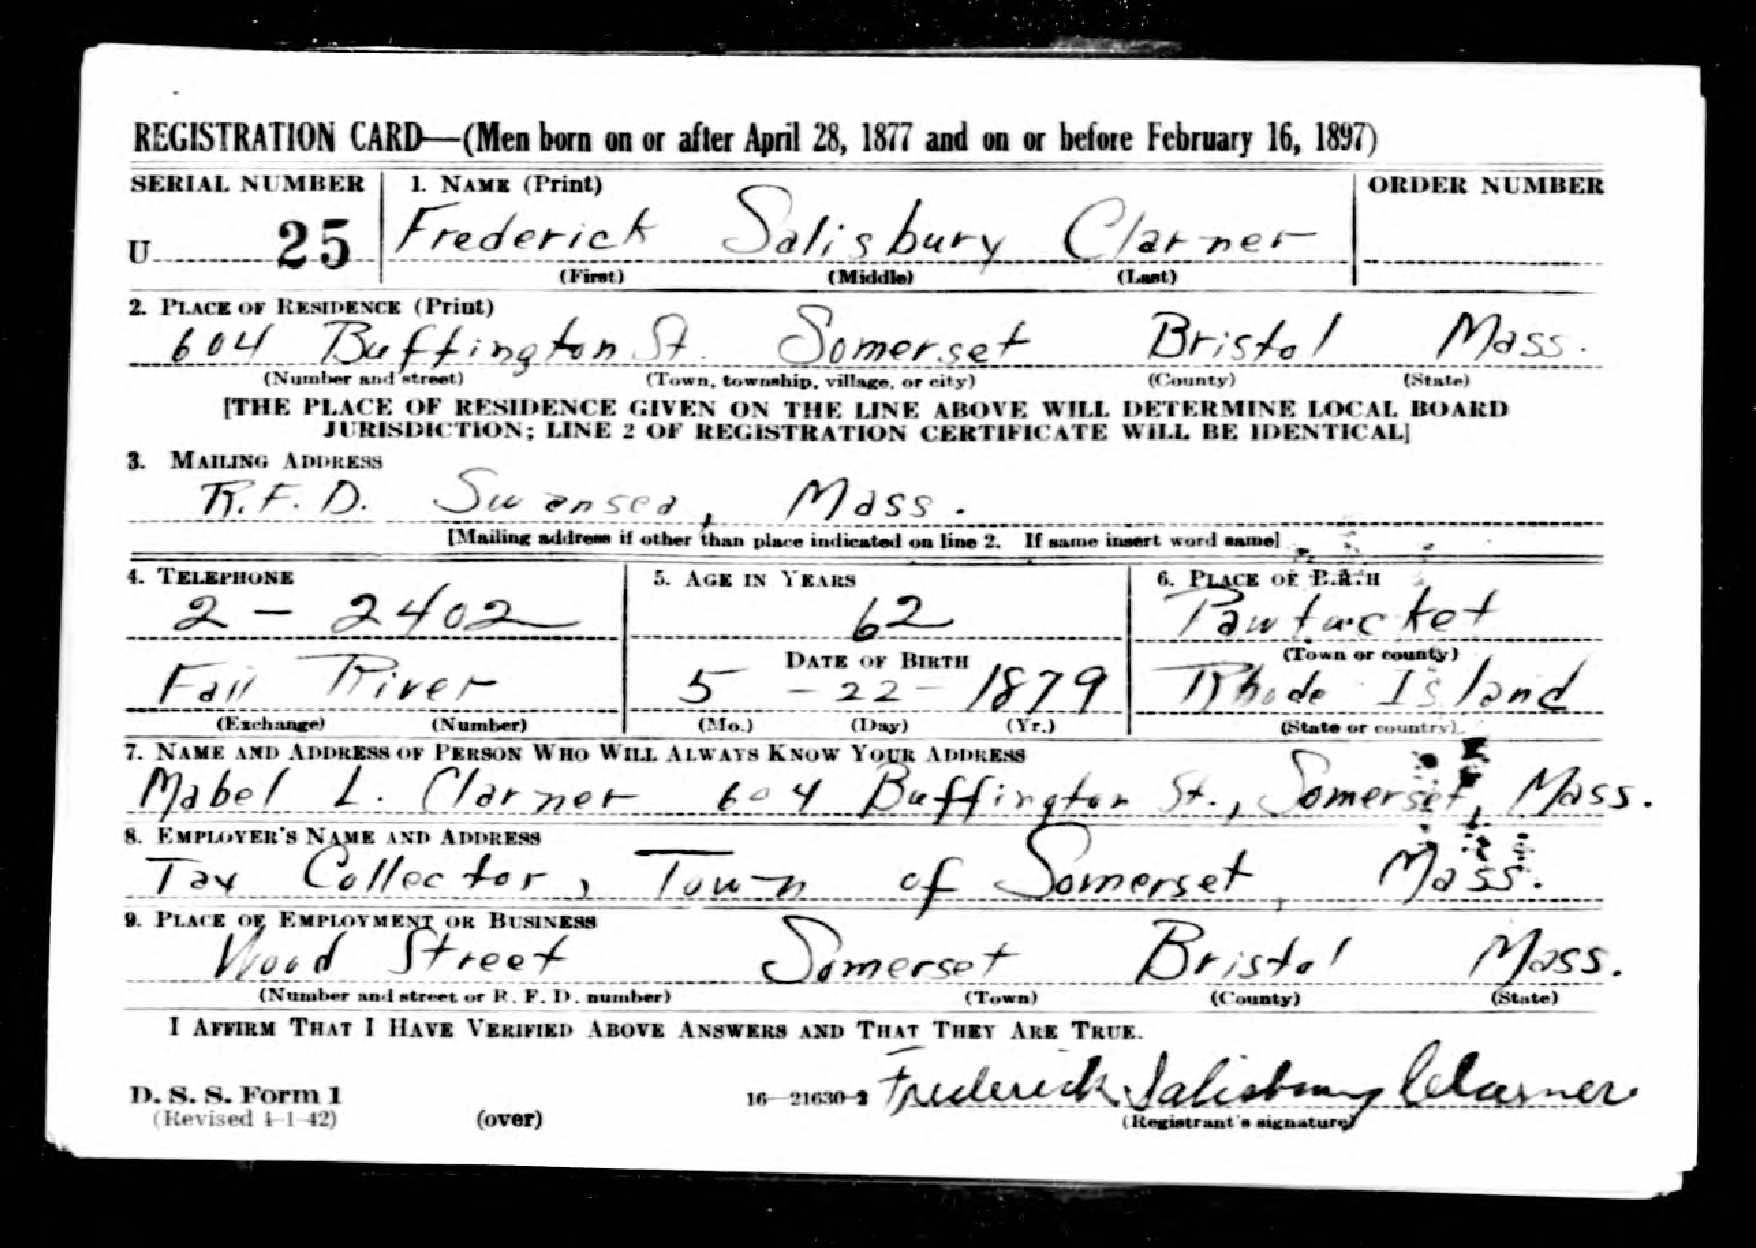 REGISTRATION CARD—(Men born on or after April 28, 1877 and on or before February 16, 1897)
SERIAL NUMBER 1. NAME (Print) ORDER NUMBER
U 25 Frederick Salisbury Clarner
(First) (Middle) (Last)
2. PLACE OF RESIDENCE (Print)
604 Buffington St. Somerset Bristol Mass.
(Number and street) (Town, township, village, or city) (County) (State)
[THE PLACE OF RESIDENCE GIVEN ON THE LINE ABOVE WILL DETERMINE LOCAL BOARD
JURISDICTION; LINE 2 OF REGISTRATION CERTIFICATE WILL BE IDENTICAL]
3. MAILING ADDRESS
R.F.D. Swansea, Mass.
[Mailing address if other than place indicated on line 2. If same insert word same]
4. TELEPHONE 5. AGE IN YEARS 6. PLACE OF BIRTH
2 - 2402 62 Pawtucket
DATE OF BIRTH (Town or county)
Fall River 5 - 22 - 1879 Rhode Island
(Exchange) (Number) (Mo.) (Day) (Yr.) (State or country)
7. NAME AND ADDRESS OF PERSON WHO WILL ALWAYS KNOW YOUR ADDRESS
Mabel L. Clarner 604 Buffington St., Somerset, Mass.
8. EMPLOYER'S NAME AND ADDRESS
Tax Collector, Town of Somerset, Mass.
9. PLACE OF EMPLOYMENT OR BUSINESS
Wood Street Somerset Bristol Mass.
(Number and street or R. F. D. number) (Town) (County) (State)
I AFFIRM THAT I HAVE VERIFIED ABOVE ANSWERS AND THAT THEY ARE TRUE.
D. S. S. Form 1 16—21630-2 Frederick Salisbury Clarner
(Revised 4-1-42) (over) (Registrant's signature)